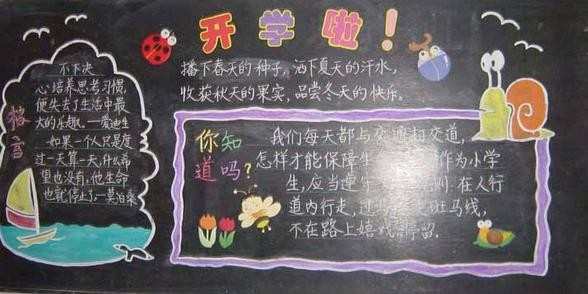 开学啦！
播下春天的种子，洒下夏天的汗水，
收获秋天的果实，品尝冬天的快乐。
格言
不下决
心培养思考习惯，
便失去了生活中最
大的乐趣。—爱迪生
如果一个人只是度
过一天算一天，什么希
望也没有，他生命
也就停止了—莫泊桑
你知
道吗？
我们每天都与交通打交道，
怎样才能保障生 作为小学
生，应当遵 则.在人行
道内行走，过 斑马线，
不在路上嬉戏 停留.